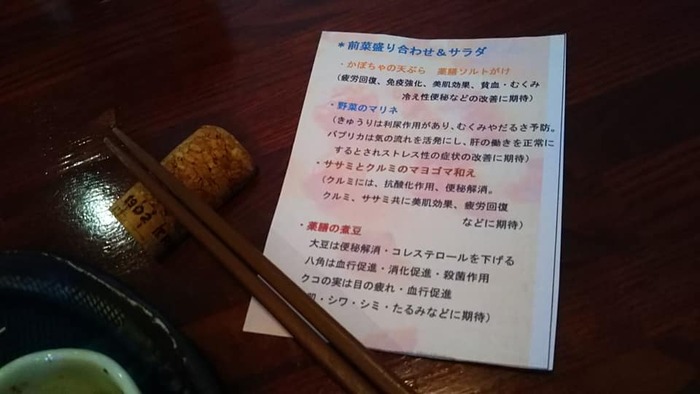 ＊前菜盛り合わせ＆サラダ
・かぼちゃの天ぷら 薬膳ソルトがけ
(疲労回復、免疫強化、美肌効果、貧血・むくみ
冷え性便秘などの改善に期待)
・野菜のマリネ
(きゅうりは利尿作用があり、むくみやだるさ予防。
パプリカは気の流れを活発にし、肝の働きを正常に
するとされストレス性の症状の改善に期待)
・ササミとクルミのマヨゴマ和え
(クルミには、抗酸化作用、便秘解消。
クルミ、ササミ共に美肌効果、疲労回復
などに期待)
・薬膳の煮豆
大豆は便秘解消・コレステロールを下げる
八角は血行促進・消化促進・殺菌作用
クコの実は目の疲れ・血行促進
・シワ・シミ・たるみなどに期待)